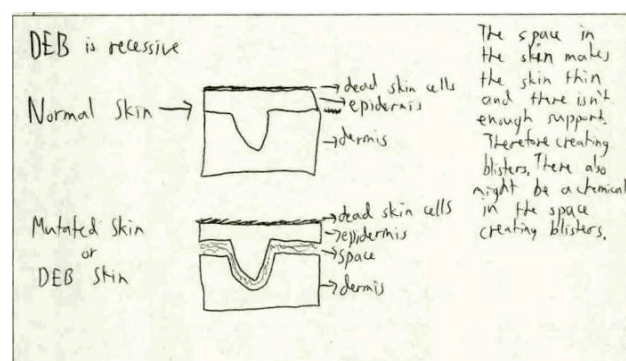 DEB is recessive
Normal Skin
dead skin cells
epidermis
dermis
Mutated Skin
or
DEB Skin
dead skin cells
epidermis
space
dermis
The space in
the skin makes
the skin thin
and there isn't
enough support.
Therefore creating
blisters. There also
might be a chemical
in the space
creating blisters.